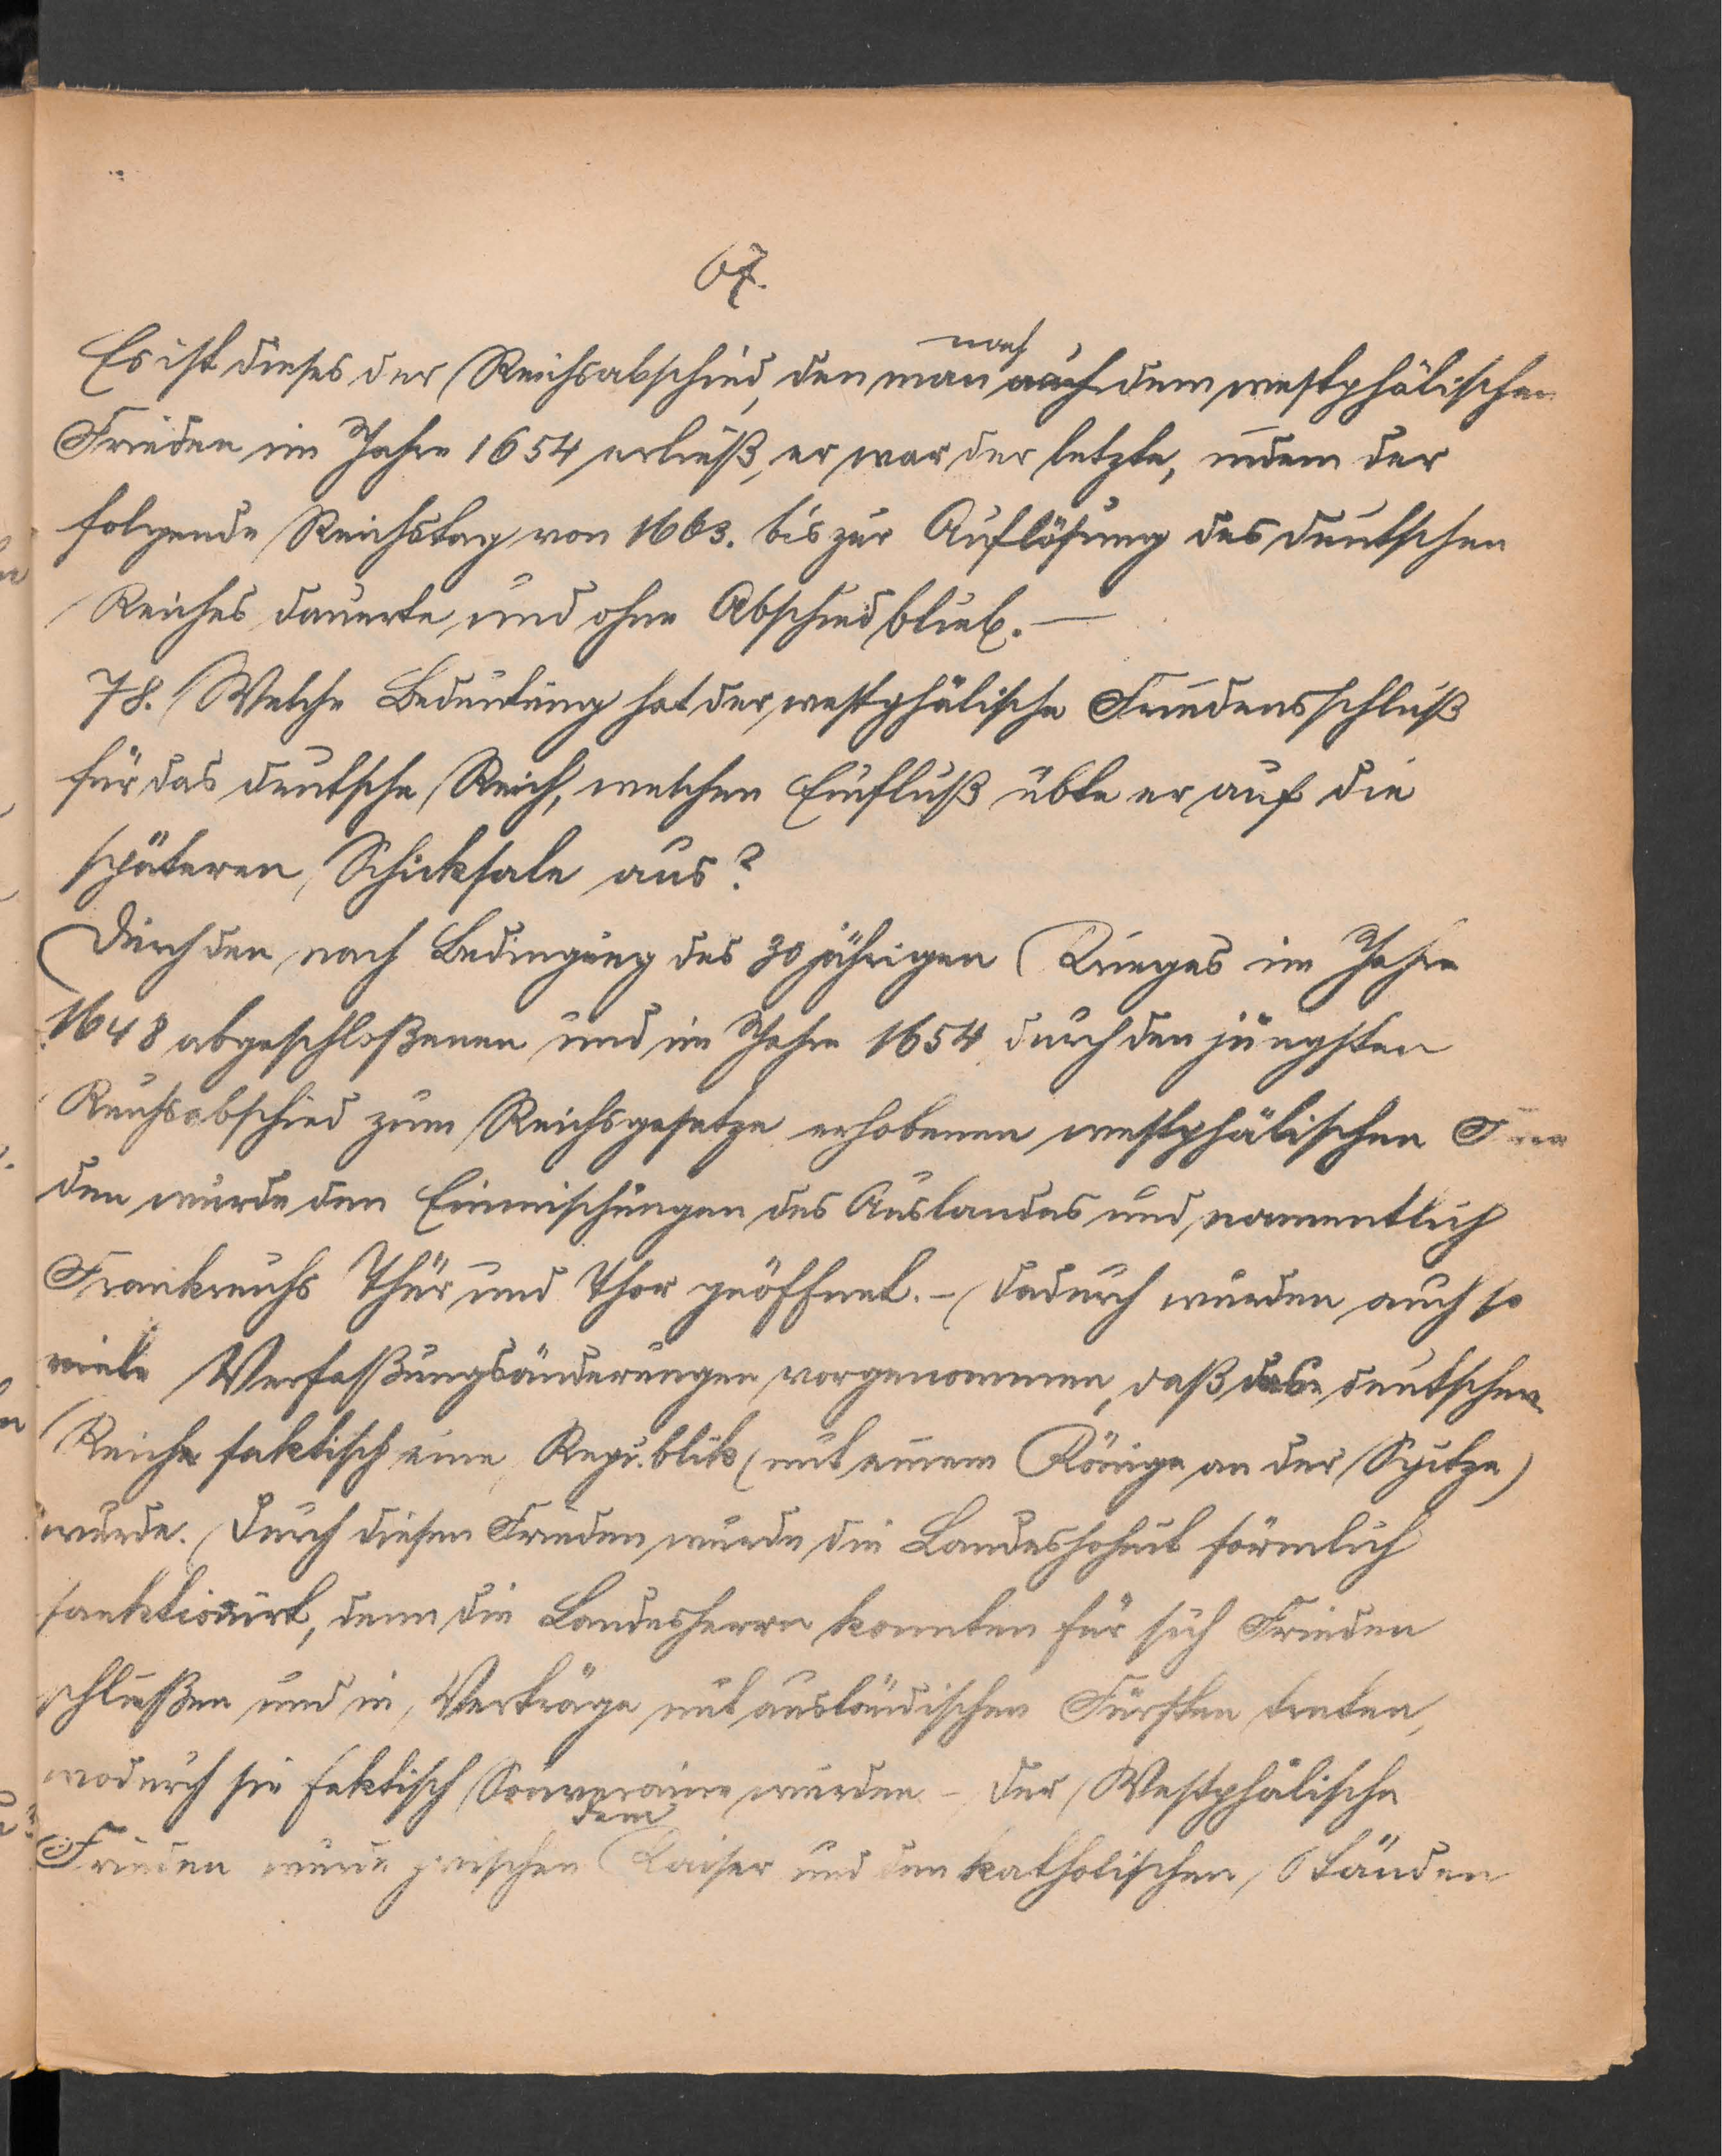 67.
nach
Es ist dieses der Reichsabschied, den man auch dem westphälischen
Frieden im Jahre 1654 erließ, er war der letzte, indem der
folgende Reichstag von 1663. bis zur Auflösung des deutschen
Reiches dauerte und ohne Abschied blieb. —
78. Welche Bedeutung hat der westphälische Friedensschluß
für das deutsche Reich, welchen Einfluß übte er auf die
späteren Schicksale aus?
Durch den nach Bedingung des 30 jährigen Krieges im Jahre
1648 abgeschloßenen und im Jahre 1654 durch den jüngsten
Reichsabschied zum Reichsgesetze erhobenen westphälischen Frie
den wurde den Einmischungen des Auslandes und namentlich
Frankreichs Thür und Thor geöffnet. – Dadurch wurden auch so
viele Verfaßungsänderungen vorgenommen, daß das deutschen
Reich faktisch eine Republik (mit einem Könige an der Spitze)
wurde. Durch diesen Frieden wurde die Landeshoheit förmlich
sanktionirt, denn die Landesherrn konnten für sich Frieden
schließen und in Verträge mit ausländischen Fürsten treten,
wodurch sie faktisch Souveraine wurden – Der Westphälische
dem
Frieden wurde zwischen Kaiser und den katholischen Ständen